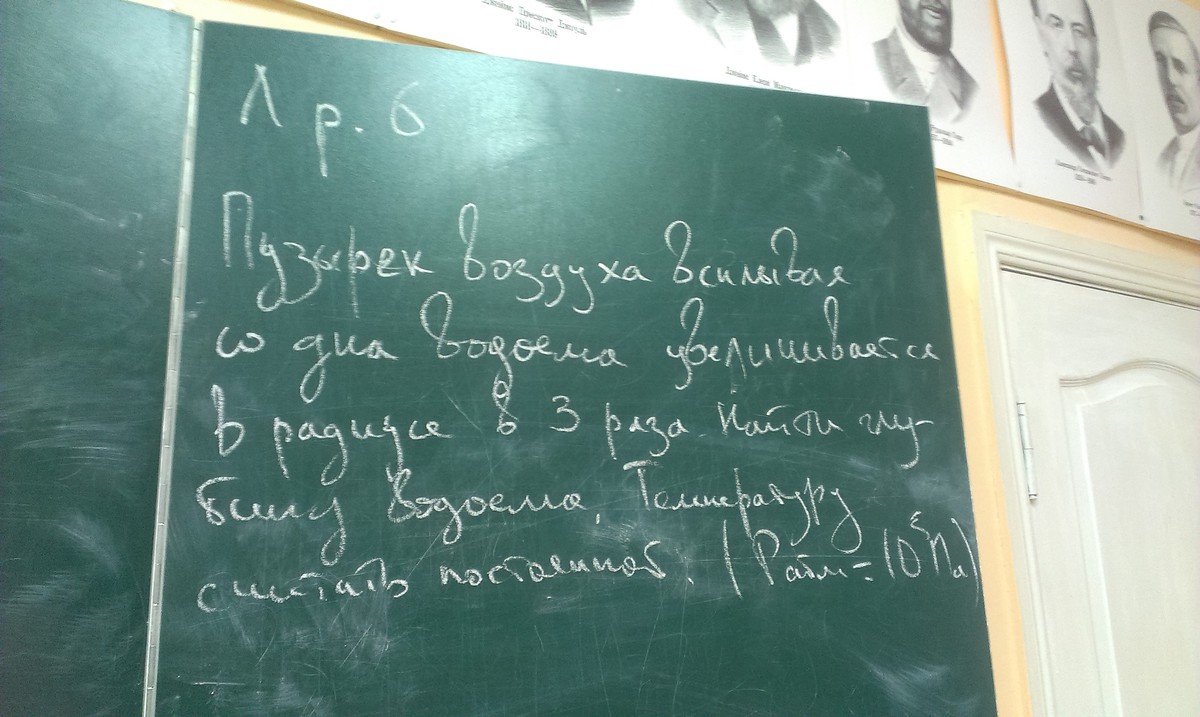 Джеймс Прескотт Джоуль
1818—1889
Л р. 6
Пузырек воздуха всплывая
со дна водоема увеличивается
в радиусе в 3 раза Найти глу-
бину водоема. Температуру
считать постоянной. (Pатм = 10⁵ Па)